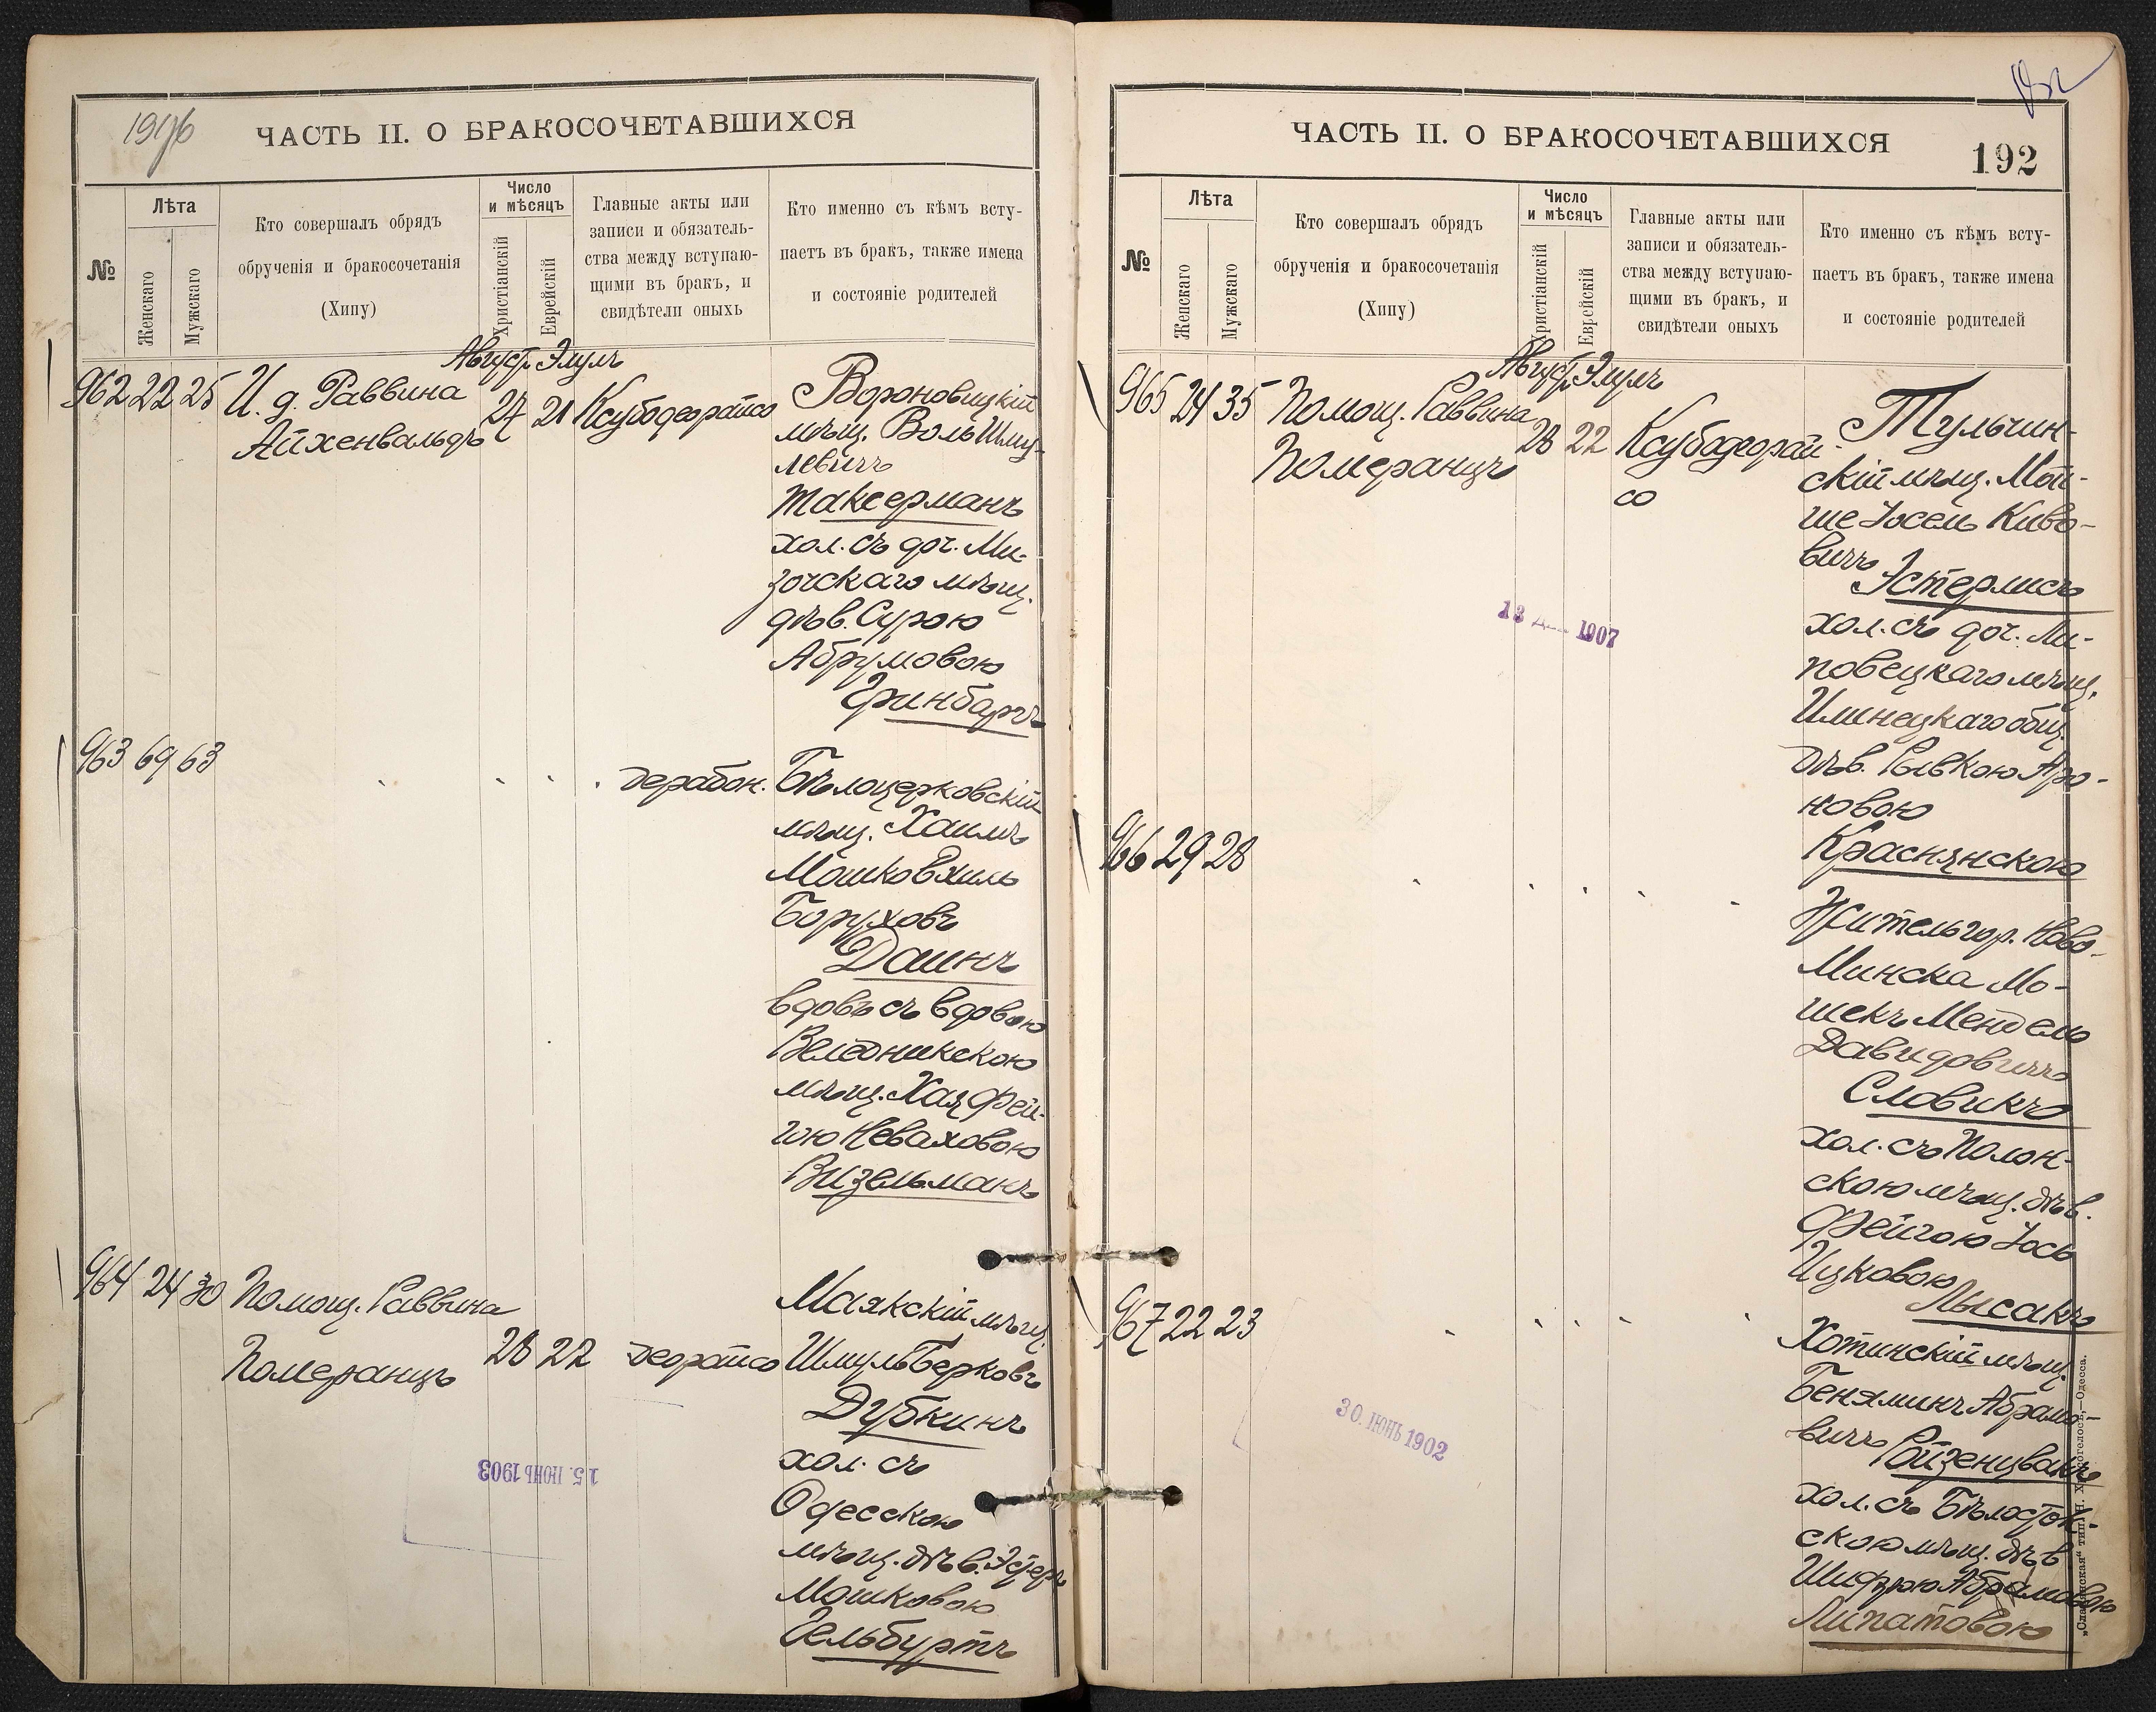 ЧАСТЬ II. О БРАКОСОЧЕТАВШИХСЯ
№
Лѣта
Женскаго
Мужскаго
Кто совершалъ обрядъ
обрученія и бракосочетанія
(Хипу)
Число
и мѣсяцъ
Христіанскій
Еврейскій
Главные акты или
записи и обязатель-
ства между вступаю-
щими въ бракъ, и
свидѣтели оныхъ
Кто именно съ кѣмъ всту-
паетъ въ бракъ, также имена
и состояніе родителей
Август. Элулъ
962 22 25 И. д. Раввина
Айхенвальдъ
27 21 Ксубодеорайсо
Вороновицкій
мѣщ. Воль Шму-
левичъ
Таксерманъ
хол. съ доч. Ми-
зочскаго мѣщ.
дѣв. Сурою
Абрумовою
Гринбаргъ
963 69 63
дерабон.
Бѣлоцерковскій
мѣщ. Хаимъ
Мошков Хиль
Боруховъ
Даинъ
вдовъ съ вдовою
Веледникскою
мѣщ. Хая Фей-
гою Неваховою
Визельманъ
964 24 30 Помощ. Раввина
Померанцъ
28 22 деорайсо
Маякскій мѣщ.
Шмуль Берковъ
Дубкинъ
хол. съ
Одесскою
мѣщ. дѣв. Эстеръ
Мошковою
Гельбуртъ
15. ІЮНЬ 1903
ЧАСТЬ II. О БРАКОСОЧЕТАВШИХСЯ
192
№
Лѣта
Женскаго
Мужскаго
Кто совершалъ обрядъ
обрученія и бракосочетанія
(Хипу)
Число
и мѣсяцъ
Христіанскій
Еврейскій
Главные акты или
записи и обязатель-
ства между вступаю-
щими въ бракъ, и
свидѣтели оныхъ
Кто именно съ кѣмъ всту-
паетъ въ бракъ, также имена
и состояніе родителей
Август. Элулъ
965 24 35 Помощ. Раввина
Померанцъ
28 22 Ксубодеорай-
со
Тульчин-
скій мѣщ. Мой-
ше Іосель Киво-
вичъ
Эстерлисъ
хол. съ доч. Ли-
повецкаго мѣщ.
Илинецкаго общ.
дѣв. Рывкою Аро-
новою
Краснянскою
13 1907
966 29 28
Житель гор. Ново-
Минска Мо-
шекъ Мендель
Давидовичъ
Словикъ
хол. съ Полон-
скою мѣщ. дѣв.
Фейгою Іось
Ицковою
Лысакъ
967 22 23
Хотинскій мѣщ.
Беняминъ Абрамо-
вичъ
Ройзенцвайгъ
хол. съ Бѣлосток-
скою мѣщ. дѣв
Шифрою Абрамовою
Липатовою
30. ІЮНЬ 1902
„Славянская“ тип. Н. Хрисогелосъ,—Одесса.